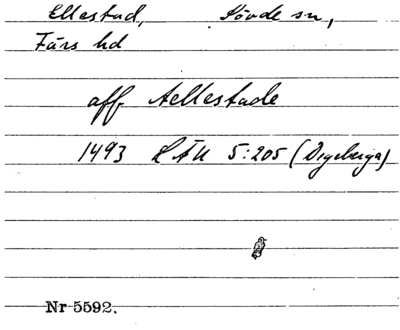 Ellestad, Sövde sn,
Färs hd
aff Aellestade
1493 LÄU 5:205 (Degeberga)
Nr 5592.